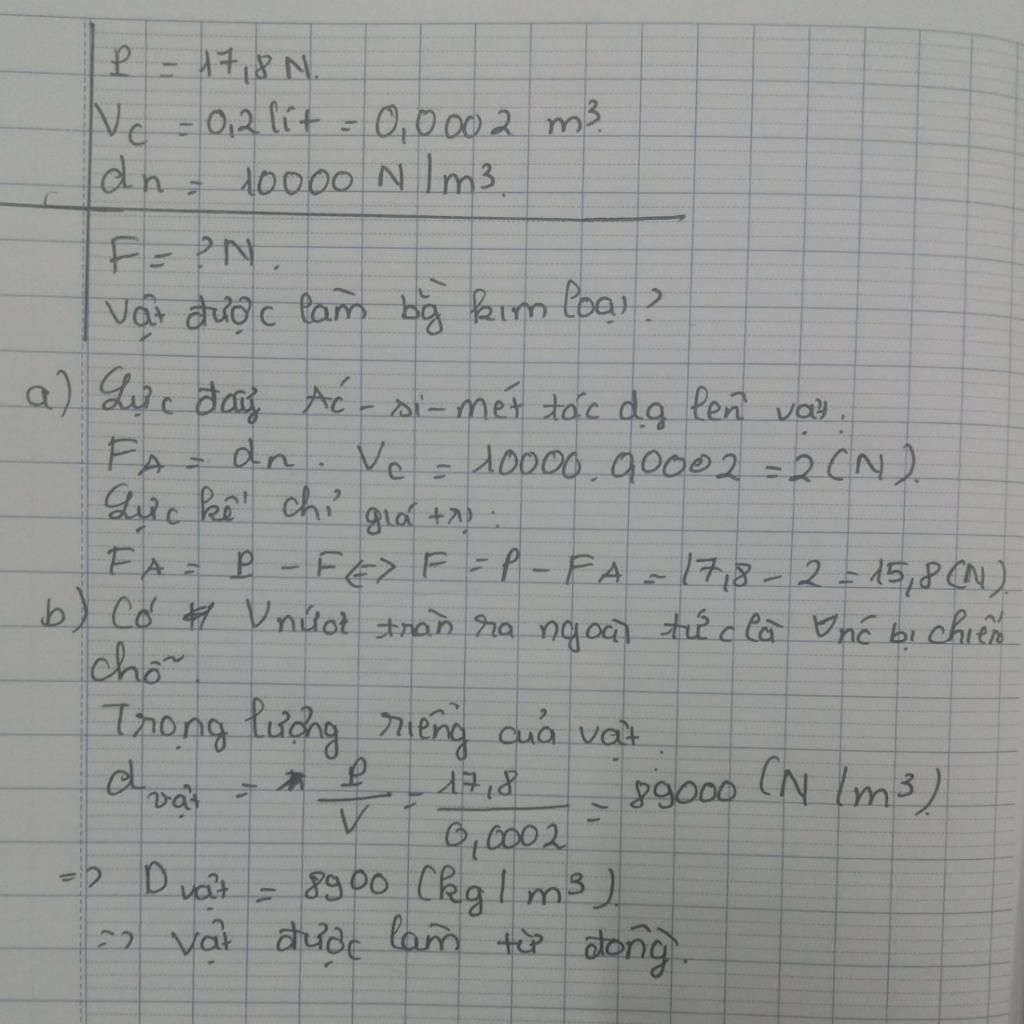 P = 17,8 N.
Vc = 0,2 lít = 0,0002 m³.
dn = 10000 N/m³.
F = ? N.
Vật được làm bg̀ kim loại ?
a) Lực đẩy Ác-si-mét tác dg lên vật:
FA = dn . Vc = 10000.0,0002 = 2 (N).
Lực kế chỉ giá trị:
FA = P - F <=> F = P - FA = 17,8 - 2 = 15,8 (N).
b) Có Vnước tràn ra ngoài tức là Vnc bị chiếm
chỗ
Trọng lượng riêng của vật.
d vật = P/V = 17,8/0,0002 = 89000 (N/m³).
=> D vật = 8900 (kg/m³).
=> vật được làm từ đồng.